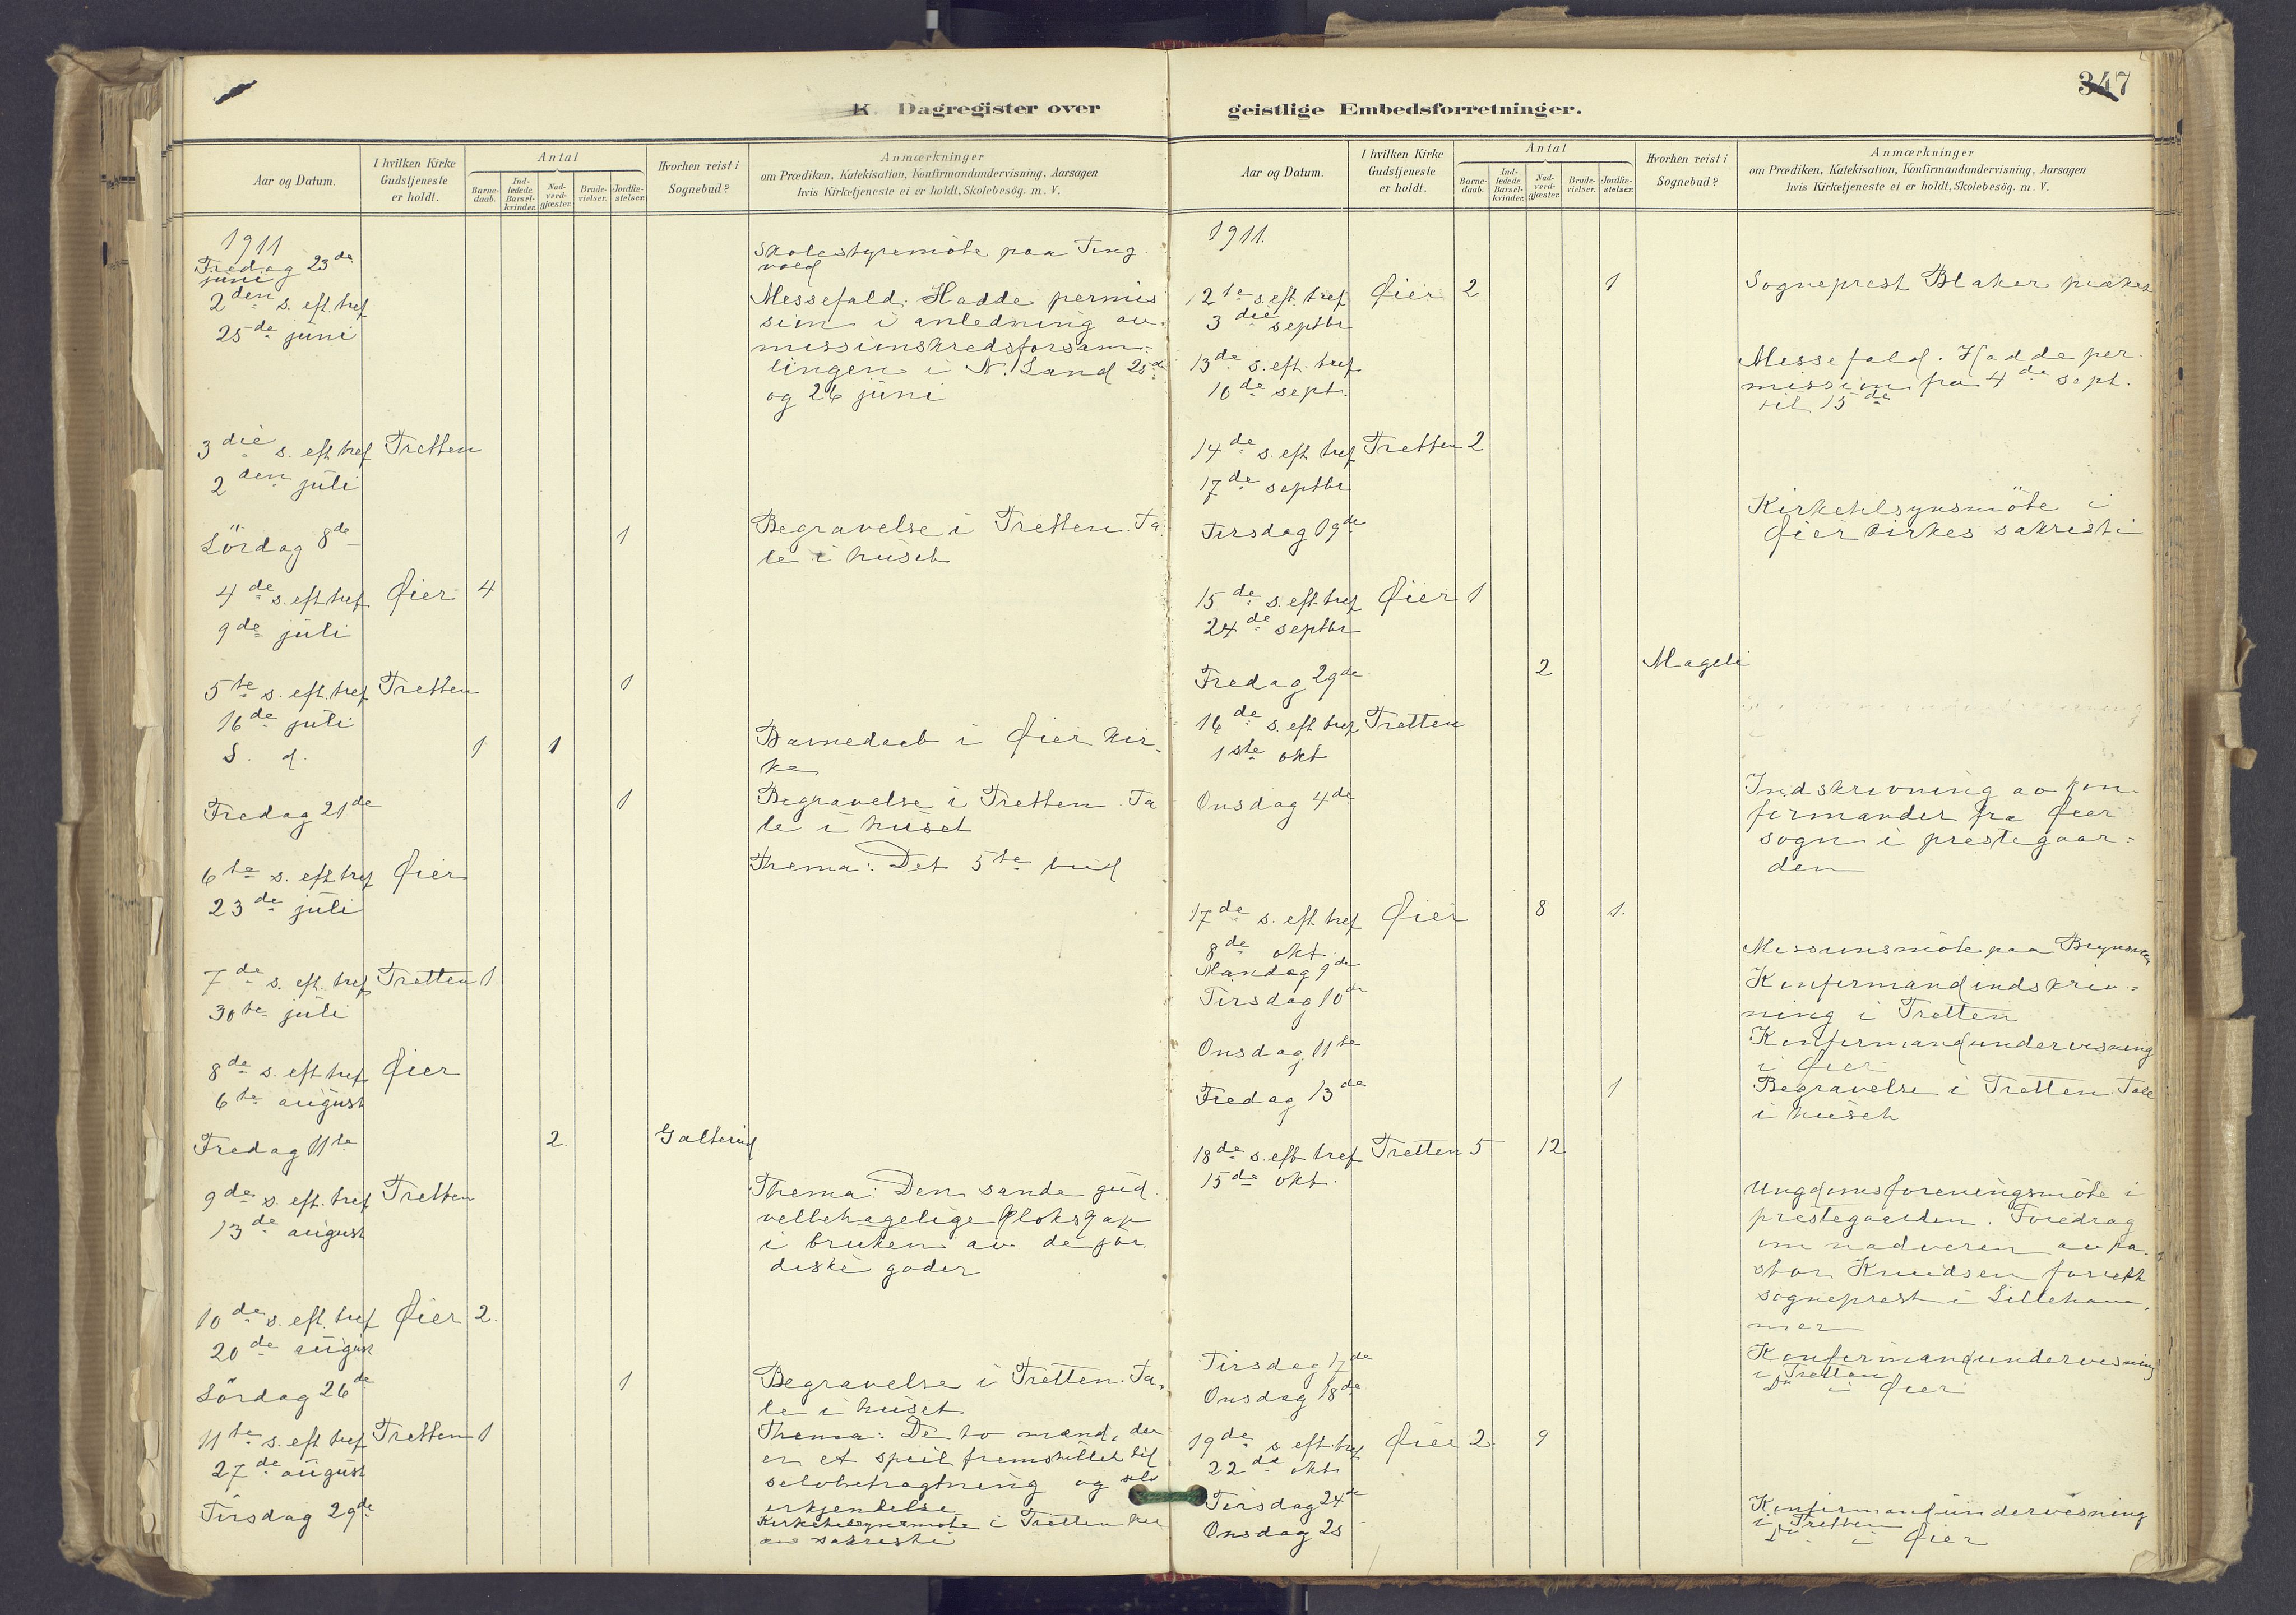 347
K. Dagregister over
Aar og Datum.
I hvilken Kirke
Gudstjeneste
er holdt.
Antal
Barne-
daab.
Ind-
ledede
Barsel-
kvinder.
Nad-
verd-
gjæster.
Brude-
vielser.
Jordfæ-
stelser.
Hvorhen reist i
Sognebud?
Anmærkninger
om Prædiken, Katekisation, Konfirmandundervisning, Aarsagen
hvis Kirketjeneste ei er holdt, Skolebesög. m. V.
1911
Fredag 23de Skolestyremöte paa Ting
juni vold
2den s. eft. tref Messefald. Hadde permis
25de juni sion i anledning av
missionskredsforsam-
lingen i N. Land 25de
og 26 juni
3die s. eft tref Tretten
2den juli
Lördag 8de 1 Begravelse i Tretten. Ta
le i huset
4de s. eft tref Øier 4
9de juli
5te s. eft. tref Tretten 1
16de juli
S. d. 1 1 Barnedaab i Øier kir-
ke
Fredag 21de 1 Begravelse i Tretten. Ta
le i huset
6te s. eft tref Øier Thema: Det 5te bud
23de juli
7de s. eft. tref Tretten 1
30te juli
8de s. eft tref Øier
6te august
Fredag 11te 2.
9de s. eft. tref Tretten Thema: Den sande gud
13de august velbehagelige klokskap
i bruken av de jor
diske goder
10de s. eft. tref Øier 2.
20de august
Lördag 26de 1 Begravelse i Tretten. Ta-
le i huset
11te s. eft tref Tretten 1 Thema: De to mænd, der
27de august er et speil fremstillet til
selvbetragtning og selv
erkjendelse
Tirsdag 29de Kirketilsynsmöte i Tretten kir
kes sakristi
geistlige Embedsforretninger.
Aar og Datum.
I hvilken Kirke
Gudstjeneste
er holdt.
Antal
Barne-
daab.
Ind-
ledede
Barsel-
kvinder.
Nad-
verd-
gjæster.
Brude-
vielser.
Jordfæ-
stelser.
Hvorhen reist i
Sognebud?
Anmærkninger
om Prædiken, Katekisation, Konfirmandundervisning, Aarsagen
hvis Kirketjeneste ei er holdt, Skolebesög. m. V.
1911.
12te s. eft. tref Øier 2 1 Sogneprest Blaker præket
3die septbr
13de s. eft. tref Messefald. Hadde per-
10de sept. mission fra 4de sept.
til 15de
14de s. eft tref Tretten 2
17de septbr
Tirsdag 19de Kirketilsynsmöte i
Øier kirkes sakristi
15de s. eft. tref Øier 1
24de septbr
Fredag 29de 2 Mageli
16de s. eft tref Tretten
1ste okt
Onsdag 4de Indskrivning av kon-
firmander fra Øier
sogn i prestegaar-
den
17de s. eft. tref Øier 8 1.
8de okt.
Mandag 9de Missionsmöte paa
Tirsdag 10de Konfirmandindskriv-
ning i Tretten
Onsdag 11te Konfirmandundervisning
i Øier
Fredag 13de 1 Begravelse i Tretten. Tale
i huset
18de s. eft tref Tretten 5 12
15de okt. Ungdomsforeningsmöte i
prestegaarden. Foredrag
om nadveren av pa-
stor Knudsen forrett
sogneprest i Lilleham-
mer
Tirsdag 17de Konfirmandundervisning
i Tretten
Onsdag 18de Do i Øier
19de s eft. tref Øier 2. 9
22de oktr
Tirsdag 24de Konfirmandundervisning
i Tretten
Onsdag 25 Do i Øier